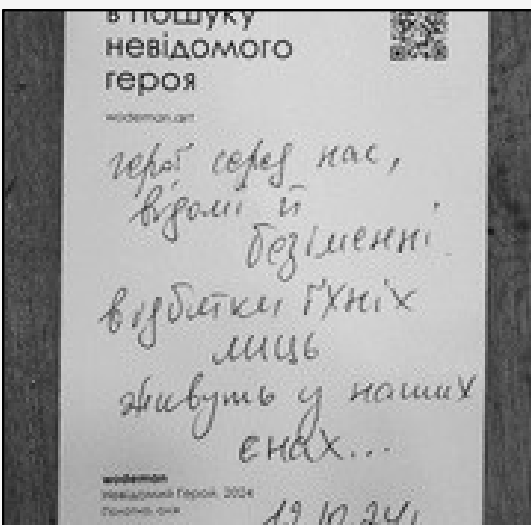 в пошуку
невідомого
героя
wodeman.art
герої серед нас,
відомі й
безіменні.
відбитки їхніх
лиць
живуть у наших
снах...
wodeman
Невідомий Герой, 2024
Полотно, олія
12.10.24